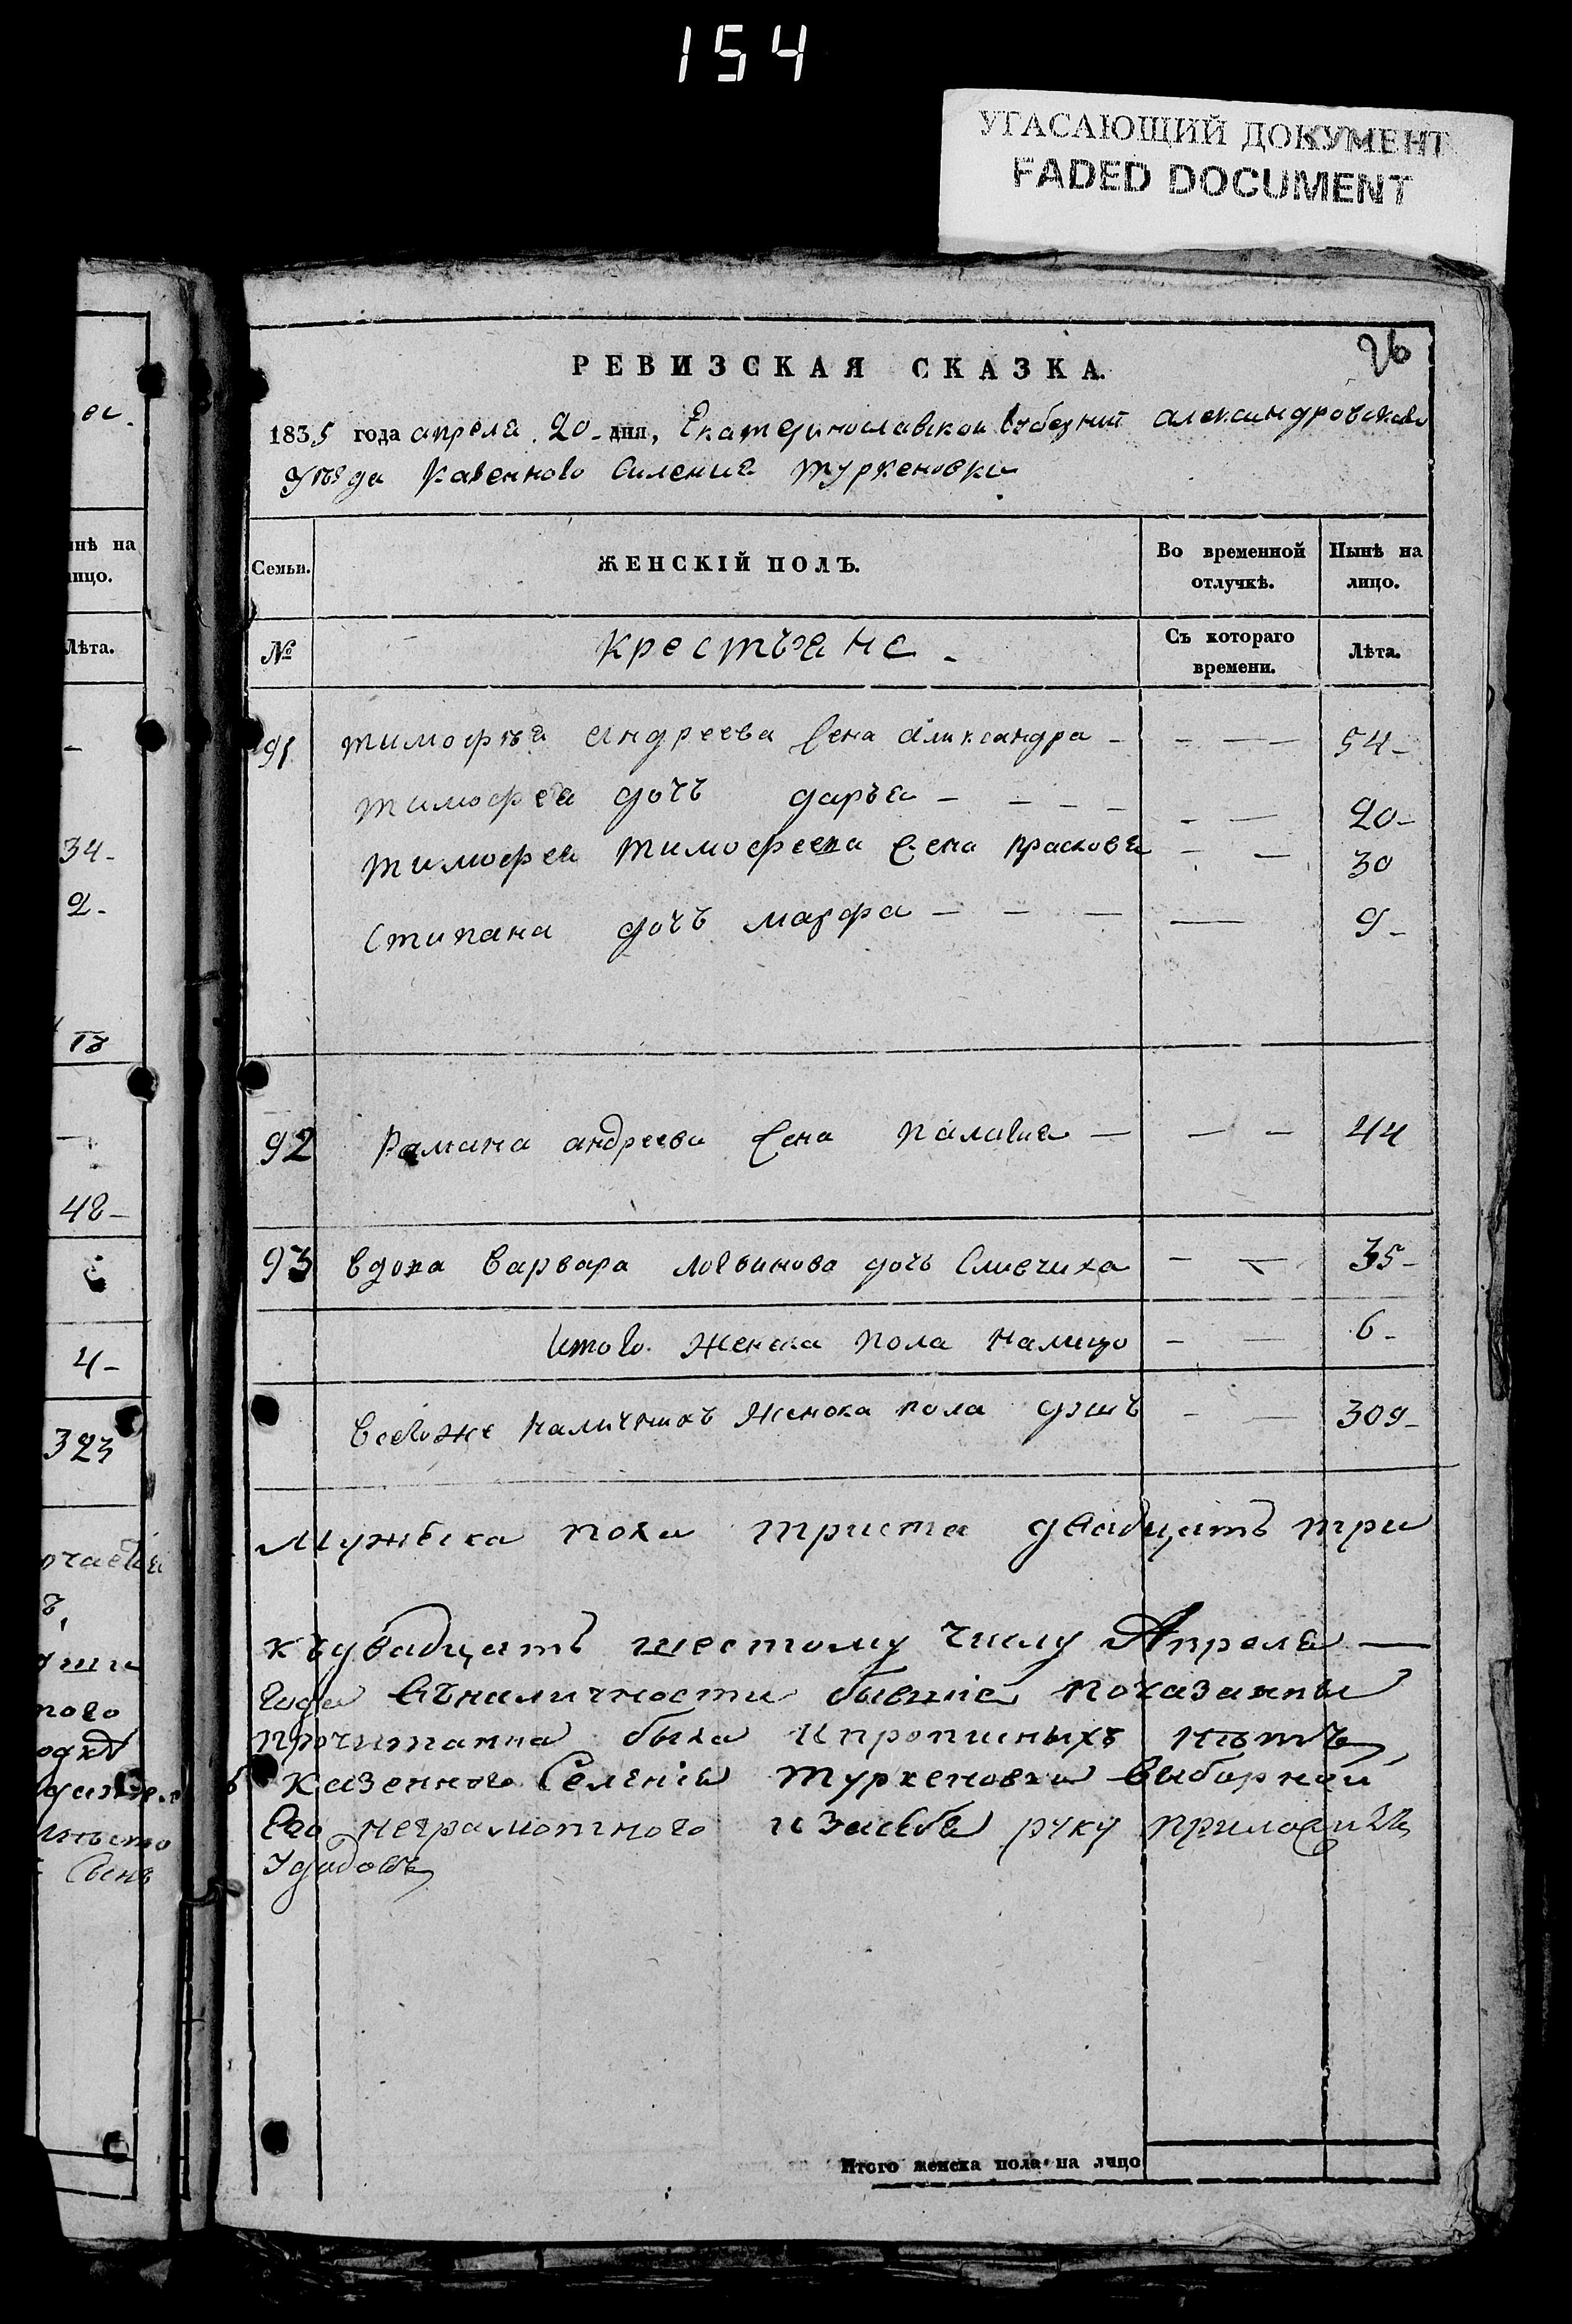 154
УГАСАЮЩИЙ ДОКУМЕНТ
FADED DOCUMENT
26
РЕВИЗСКАЯ СКАЗКА.
1835 года апреля 20 дня, Екатеринославской Губернии александровскаво
уѣзда Казенново Силения туркеновки
Семьи.
ЖЕНСКІЙ ПОЛЪ.
Во временной отлучкѣ.
Нынѣ на лицо.
№
крестьяне
Съ котораго времени.
Лѣта.
91 тимофѣя андреева жена александра - 54
тимофея дочь дарья - 20
тимофея тимофеева жена прасковя 30
Стипана дочь марфа - 9
92 Рамана андреева жена палагия - 44
93 вдова варвара логвинова дочь Сливчиха 35
Итово женска пола налицо 6
Всевоже наличныхъ женска пола душъ 309
Мужеска пола триста двадцать три
къ двадцать шестому числу Апреля
года въналичности бывшіе показанны
прочитанна была ипрописныхъ нѣтъ
Казенного Селенія туркеновки выборной
его неграмотного изасебя руку приложилъ
Удодовъ
Итого женска пола на лицо
нѣ на
ицо.
Лѣта.
34
2
48
4
323
Сынъ